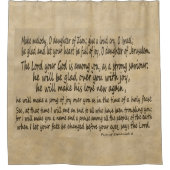 Make melody, O daughter of Zion; give a loud cry, O Israel;
be glad and let your heart be full of joy, O daughter of Jerusalem.
The Lord your God is among you, as a strong saviour:
he will be glad over you with joy,
he will make his love new again,
he will make a song of joy over you as in the time of a holy feast
See, at that time I will one an end of all who have been troubling you
for I will make you a name and a praise among all the peoples of the earth
when I let your fate be changed before your eyes, says the Lord.